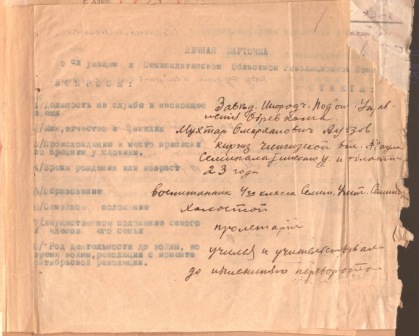 ЛИЧНАЯ КАРТОЧКА
о служащем в Семипалатинском Областном Революционном Коми
ВОПРОСЫ:
Должность на службе в настоящее
время
Завед. Инород. Подот. Управ-
ления Обревкома
Имя, отчество и фамилия
Мухтар Омарханович Ауэзов
Происхождение и место приписки
по прежним у
киргиз Чингизской вол.
Семипалатинского у. и области
время рождения или возраст
23 года
образование
воспитанник 4го класса Семин. Учит. Семин
Семейное положение
Холостой
Имущественное положение самого
и его семьи
пролетарий
Род деятельности до войны, во
время войны, революции с момента
октябрьской революции.
учился и учительствовал
до нынешнего переворота